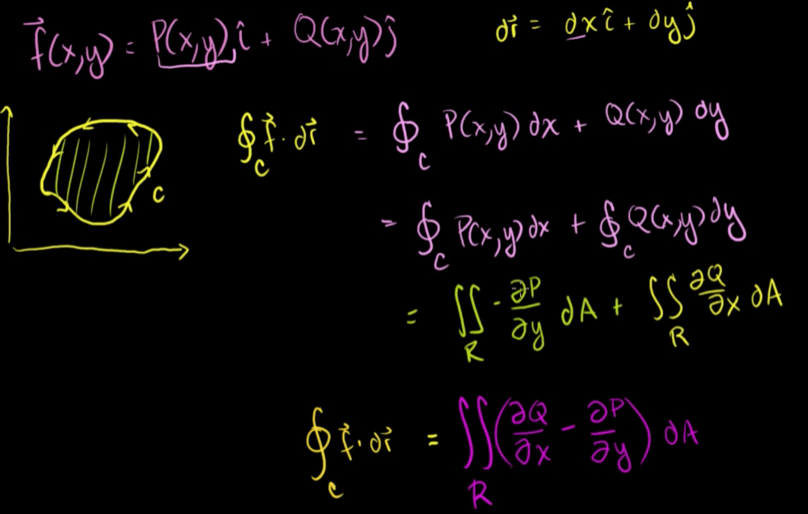 f⃗(x,y) = P(x,y)î + Q(x,y)ĵ
dr⃗ = dxî + dyĵ
∮_C f⃗·dr⃗ = ∮_C P(x,y)dx + Q(x,y)dy
C
= ∮_C P(x,y)dx + ∮_C Q(x,y)dy
= ∬_R -∂P/∂y dA + ∬_R ∂Q/∂x dA
∮_C f⃗·dr⃗ = ∬_R (∂Q/∂x - ∂P/∂y) dA